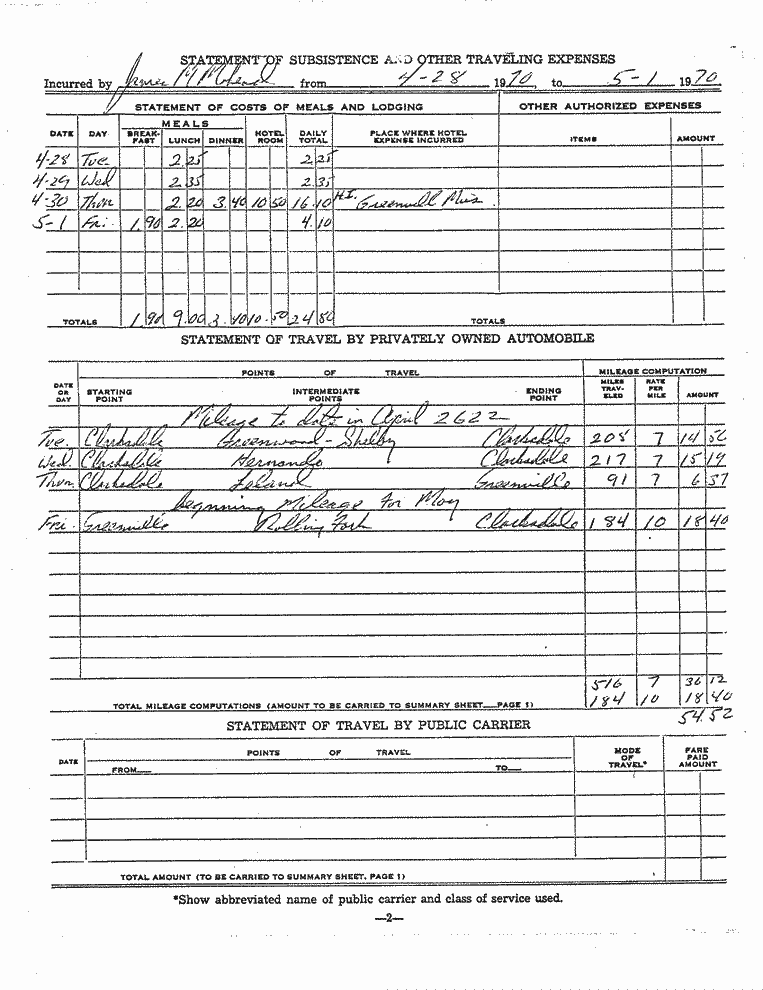 STATEMENT OF SUBSISTENCE AND OTHER TRAVELING EXPENSES
Incurred by James M from 4-28 1970, to 5-1 1970
STATEMENT OF COSTS OF MEALS AND LODGING OTHER AUTHORIZED EXPENSES
MEALS
DATE DAY BREAK-FAST LUNCH DINNER HOTEL ROOM DAILY TOTAL PLACE WHERE HOTEL EXPENSE INCURRED ITEMS AMOUNT
4-28 Tue 2.25 2.25
4-29 Wed 2.35 2.35
4-30 Thur 2.20 3.40 10.50 16.10 H.I. Greenvill Mis.
5-1 Fri. 1.90 2.20 4.10
TOTALS 1.90 9.00 3.40 10.50 24.80 TOTALS
STATEMENT OF TRAVEL BY PRIVATELY OWNED AUTOMOBILE
POINTS OF TRAVEL MILEAGE COMPUTATION
DATE OR DAY STARTING POINT INTERMEDIATE POINTS ENDING POINT MILES TRAV-ELED RATE PER MILE AMOUNT
Mileage to date in April 2622
Tue. Clarksdale Greenwood - Shelby Clarksdale 208 7 14 56
Wed. Clarksdale Hernando Clarksdale 217 7 15 19
Thur. Clarksdale Leland Greenville 91 7 6 37
beginning Mileage for May
Fri. Greenville Rolling Fork Clarksdale 184 10 18 40
516 7 36 12
TOTAL MILEAGE COMPUTATIONS (AMOUNT TO BE CARRIED TO SUMMARY SHEET—PAGE 1) 184 10 18 40
54.52
STATEMENT OF TRAVEL BY PUBLIC CARRIER
DATE POINTS OF TRAVEL MODE OF TRAVEL* FARE PAID AMOUNT
FROM— TO—
TOTAL AMOUNT (TO BE CARRIED TO SUMMARY SHEET, PAGE 1)
*Show abbreviated name of public carrier and class of service used.
—2—